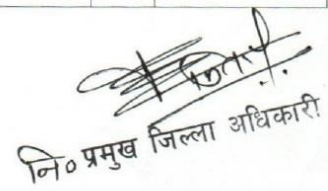 नि० प्रमुख जिल्ला अधिकारी